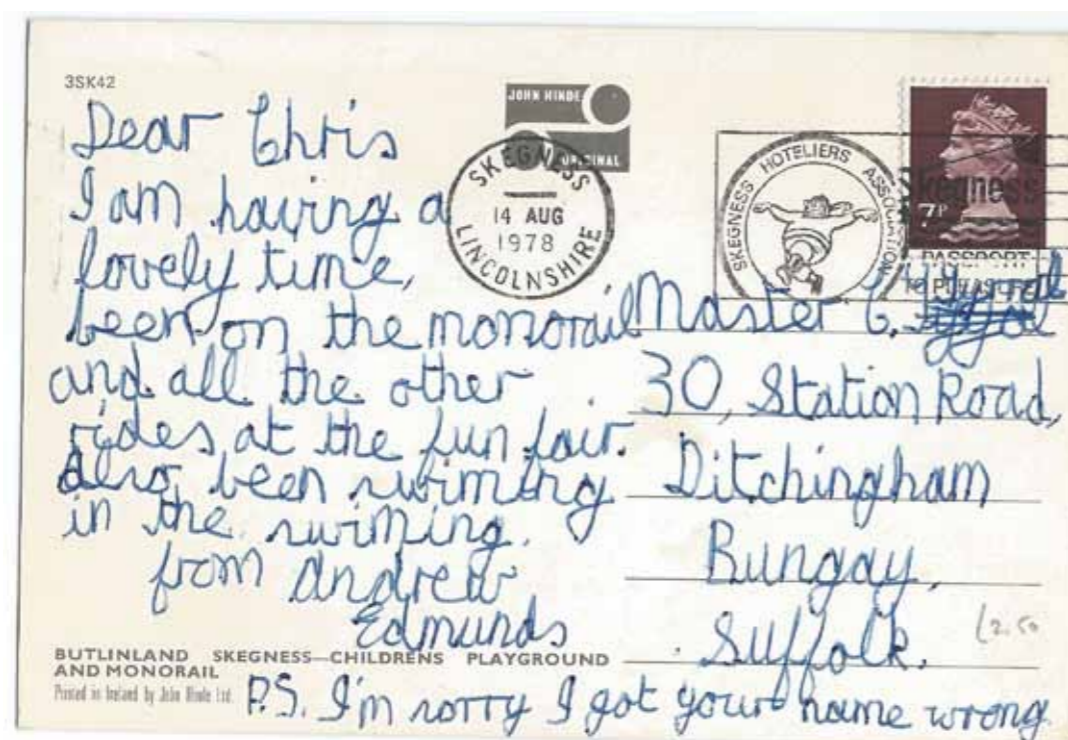 3SK42
JOHN HINDE
ORIGINAL
SKEGNESS
14 AUG
1978
LINCOLNSHIRE
SKEGNESS HOTELIERS ASSOCIATION
Skegness
7P
PASSPORT
TO PLEASURE
Dear Chris
I am having a
lovely time,
been on the monorail
and all the other
rides at the fun fair.
Also been swiming
in the swiming.
from Andrew
Edmunds
Master C.
30, Station Road,
Ditchingham
Bungay,
Suffolk.
£2.50
BUTLINLAND SKEGNESS—CHILDRENS PLAYGROUND
AND MONORAIL
Printed in Ireland by John Hinde Ltd.
P.S. I'm sorry I got your name wrong